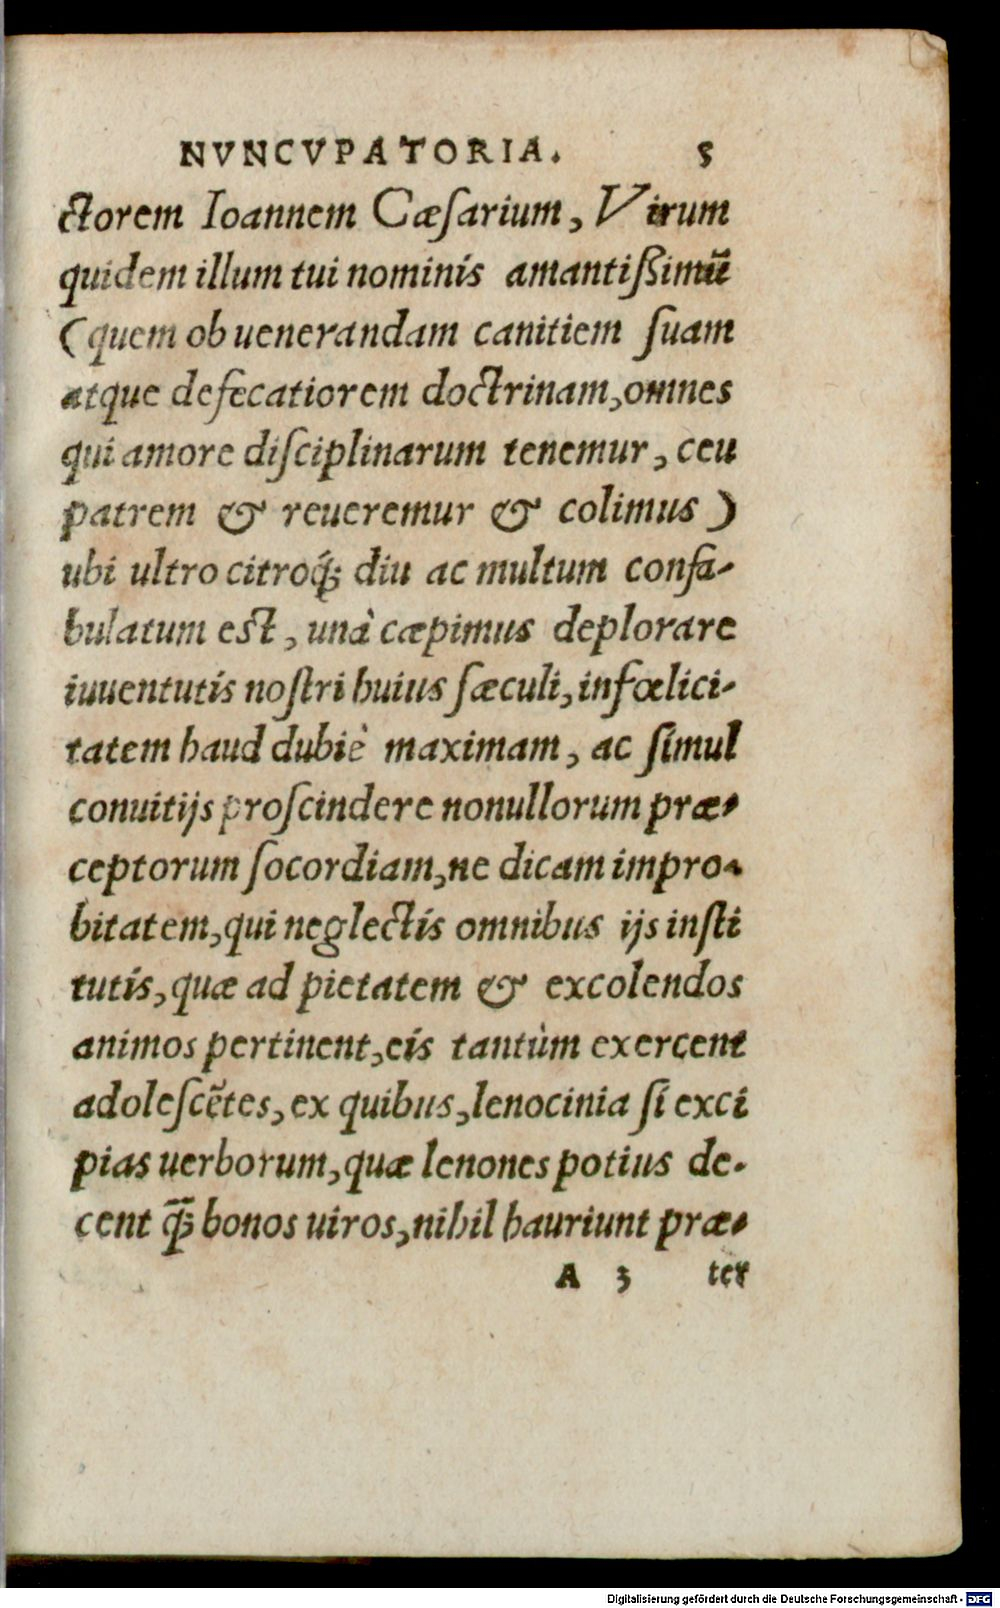 NVNCVPATORIA. 5
ctorem Ioannem Cæſarium, Virum
quidem illum tui nominis amantiſsimũ
(quem ob uenerandam canitiem ſuam
atque defecatiorem doctrinam, omnes
qui amore diſciplinarum tenemur, ceu
patrem & reueremur & colimus)
ubi ultro citroq́; diu ac multum confa-
bulatum est, unà cæpimus deplorare
iuuentutis noſtri huius ſæculi, infœlici-
tatem haud dubiè maximam, ac ſimul
conuitijs proſcindere nonullorum præ-
ceptorum ſocordiam, ne dicam impro-
bitatem, qui neglectis omnibus ijs inſti
tutis, quæ ad pietatem & excolendos
animos pertinent, eis tantùm exercent
adoleſcẽtes, ex quibus, lenocinia ſi exci
pias uerborum, quæ lenones potius de-
cent q̃; bonos uiros, nihil hauriunt præ-
A 3 ter
Digitalisierung gefördert durch die Deutsche Forschungsgemeinschaft - DFG